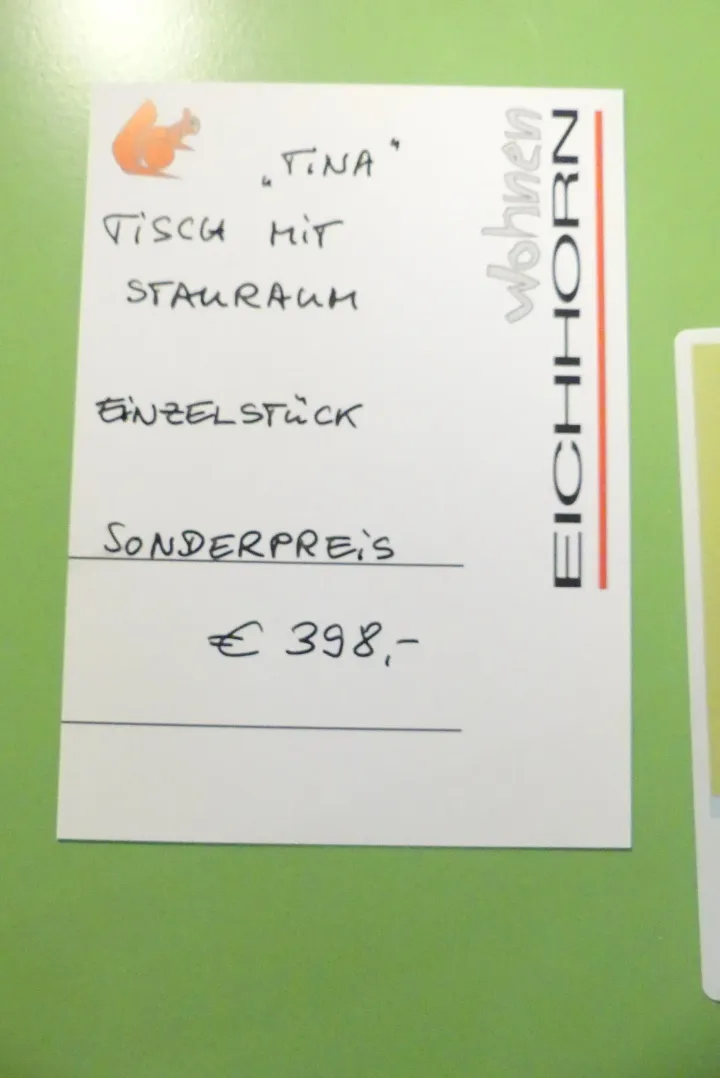 „TiNA"
TiSCH MiT
STAURAUM
EiNZELSTÜCK
SONDERPREiS
€ 398,-
wohnen
EICHHORN